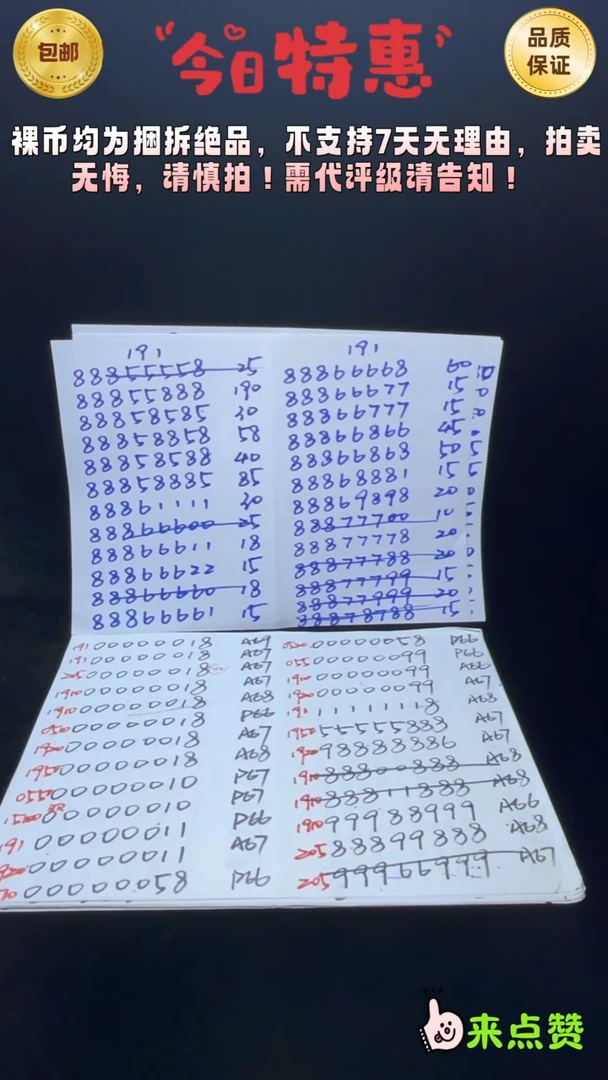 包邮
今日特惠
品质
保证
裸币均为捆拆绝品，不支持7天无理由，拍卖
无悔，请慎拍！需代评级请告知！
191
88855558 25
88855888 190
88858585 30
88858858 58
88858588 40
88858885 85
88861111 30
88866600 25
88866611 18
88866622 15
88866660 18
88866661 15
191
88866668 60
88866677 15
88866777 15
88866866 45
88866868 50
88868881 15
88869898 20
88877700 10
88877778 20
88877788 20
88877799 15
88877999 20
88878788 15
191 00000018 A69
191 00000018 A67
205 00000018 A67
1910 00000018 A67
1910 00000018 A68
050 00000018 P66
1900 00000018 A67
1950 00000018 A68
055 00000010 P67
00000010 P67
191 00000011 P66
00000011 A67
00000058 P66
00000058 P66
055 00000099 P66
1910 00000099 A66
1900 00000099 A67
191 11111118 A68
1950 55555888 A67
1920 98888886 A67
1910 88800888 A68
1910 88811888 A68
1910 99988999 A66
205 88899888 A68
205 99966999 A67
来点赞